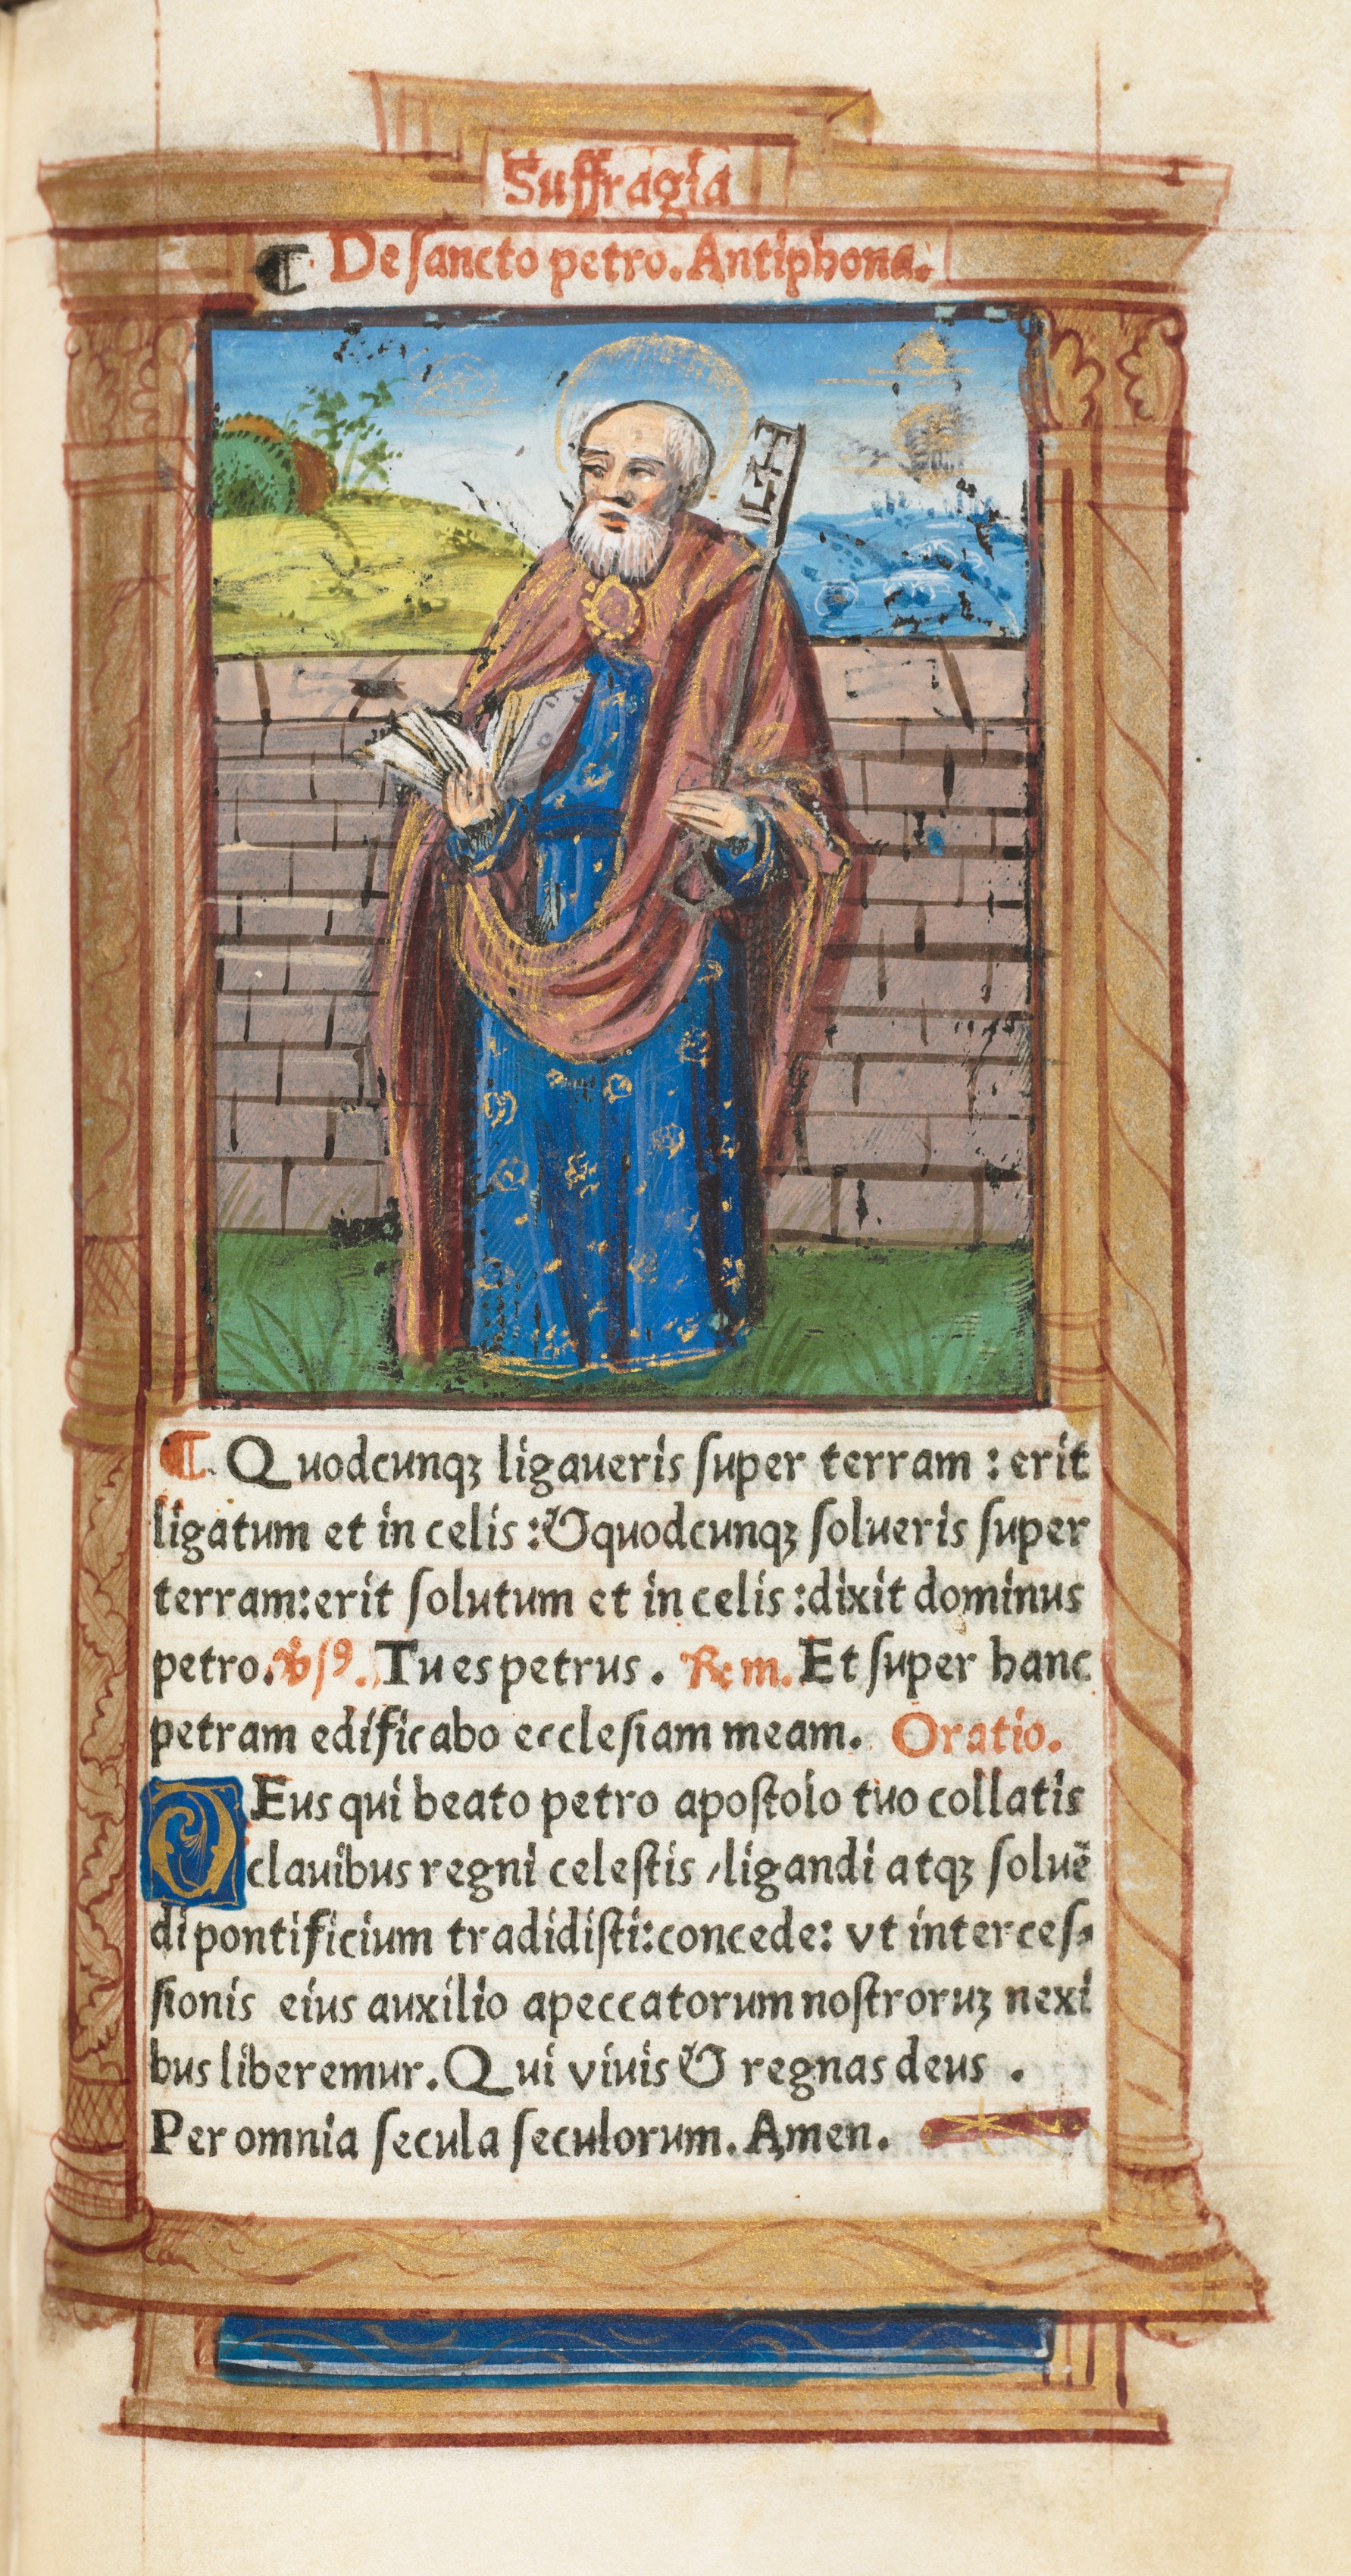 Suffragia
¶ De ſancto petro. Antiphona.
¶ Quodcunqꝫ ligaueris ſuper terram : erit
ligatum et in celis : & quodcunqꝫ ſolueris ſuper
terram: erit ſolutum et in celis : dixit dominus
petro. v̉ſꝰ. Tu es petrus . ℞m. Et ſuper hanc
petram edificabo eccleſiam meam. Oratio.
DEus qui beato petro apoſtolo tuo collatis
clauibus regni celeſtis / ligandi atqꝫ ſoluē
di pontificium tradidiſti: concede: vt interceſ⸗
ſionis eius auxilio a peccatorum noſtroruꝫ nexi
bus liberemur. Qui viuis & regnas deus .
Per omnia ſecula ſeculorum. Amen.